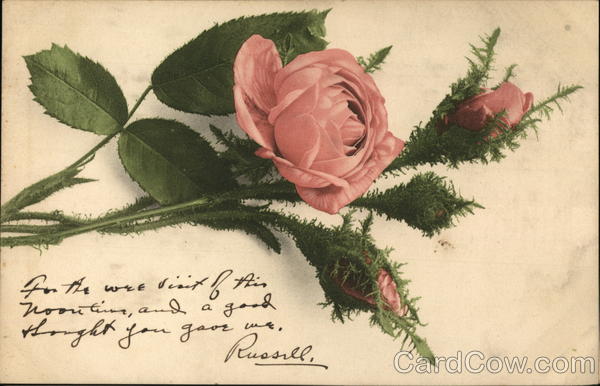 For the wee visit of this
noontime, and a good
thought you gave me.
Russell.
CardCow.com